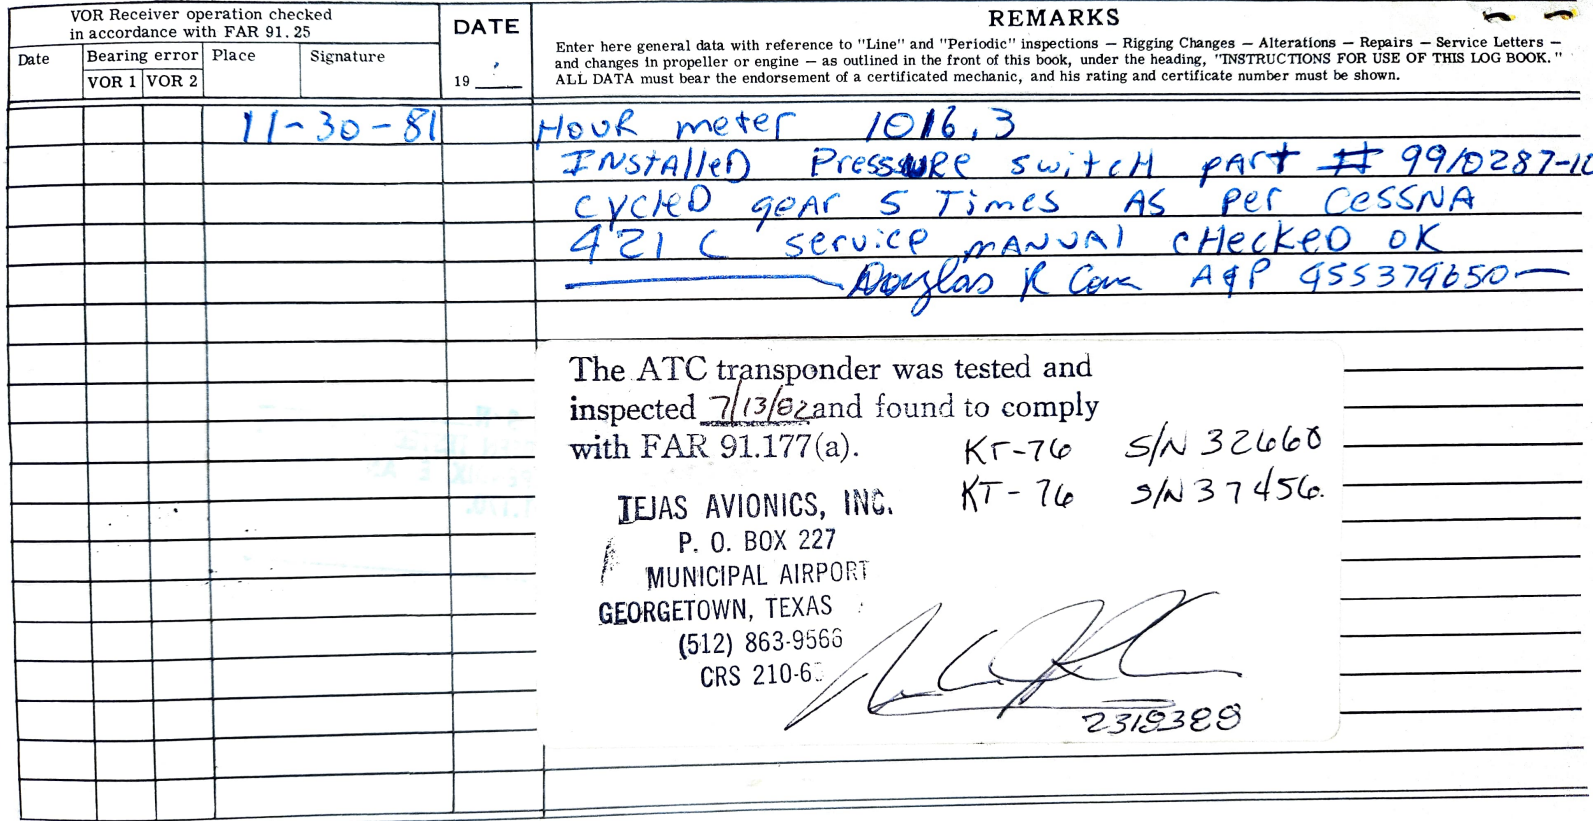 VOR Receiver operation checked
in accordance with FAR 91.25
Date
Bearing error
Place
Signature
VOR 1
VOR 2
DATE
19
REMARKS
Enter here general data with reference to "Line" and "Periodic" inspections — Rigging Changes — Alterations — Repairs — Service Letters —
and changes in propeller or engine — as outlined in the front of this book, under the heading, "INSTRUCTIONS FOR USE OF THIS LOG BOOK."
ALL DATA must bear the endorsement of a certificated mechanic, and his rating and certificate number must be shown.
11-30-81 HOUR meter 1016.3
INStAlleD PressURe switcH pArt # 9910287-
cycleD geAr 5 Times AS Per CeSSNA
421 C service mANUAl cHecKeD OK
Douglas R A&P 455379650
The ATC transponder was tested and
inspected 7/13/82 and found to comply
with FAR 91.177(a).
KT-76 S/N 32660
KT-76 S/N 37456.
TEJAS AVIONICS, INC.
P. O. BOX 227
MUNICIPAL AIRPORT
GEORGETOWN, TEXAS
(512) 863-9566
CRS 210-6
2318388